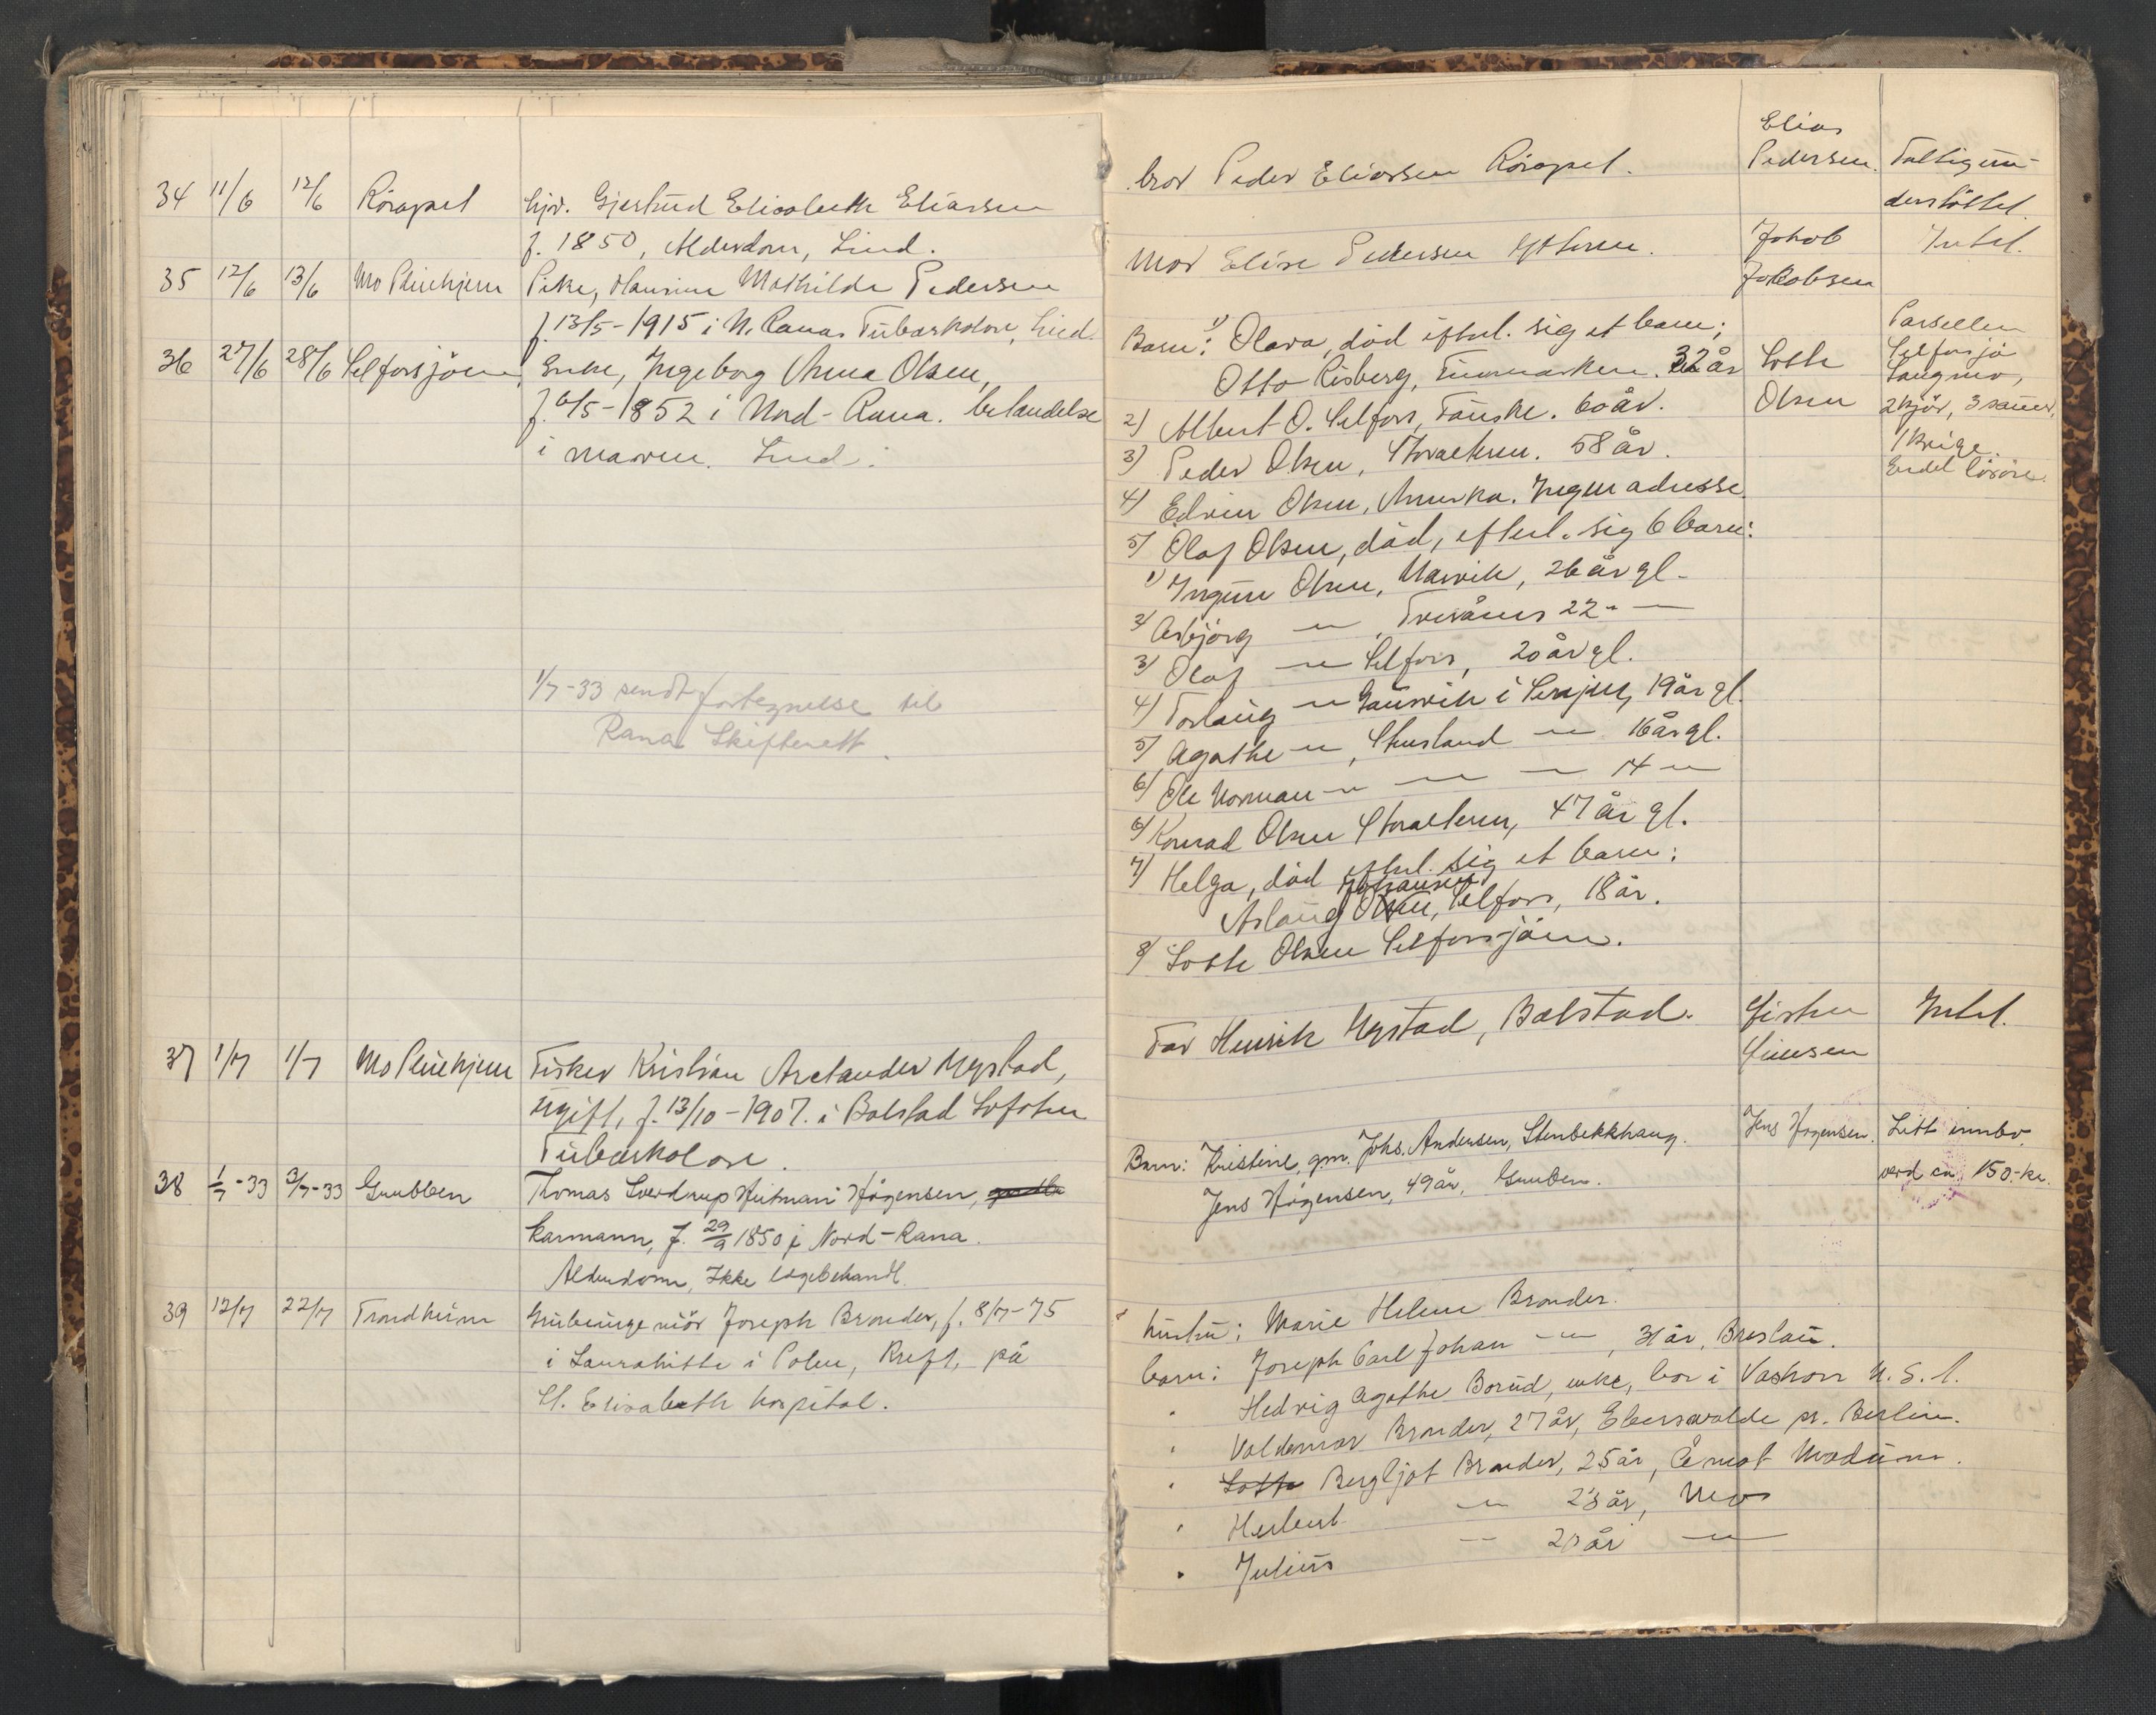 34 11/6 12/6 Rösapel hjv. Gjertrud Elisabeth Eliassen
f. 1850, Alderdom, Lind.
35 12/6 13/6 Mo Pleiehjem Pike, Mathilde Pedersen
f. 13/5-1915 i N. Rana. Tuberkolose, Lind.
36 27/6 28/6 Selforsjöen, Enke, Ingeborg Anna Olsen,
f. 6/5-1852 i Nord-Rana.
i maven. Lind.
1/7-33 sendt fortegnelse til
Rana Skifterett.
37 1/7 1/7 Mo Pleiehjem Fisker Kristian Arelander Mystad,
ugift, f. 13/10-1907. i Balstad Lofoten
Tuberkolose.
38 1/7-33 3/7-33 Grubben Thomas Sverdrup Hutman Hågensen,
karmann, f. 29/9 1850 i Nord-Rana.
Alderdom, Ikke lægebehandl.
39 12/7 22/7 Trondheim Grubeingeniör Joseph Brander, f. 8/7-75
i Laurahütte i Polen, Kreft, på
St. Elisabeth hospital.
bror Peder Eliassen Rösapel. Elias
Pedersen. Fattigun-
derstöttet.
Mor Elise Pedersen Ytteren. Jakob
Jakobsen Intet.
Barn: 1) Olava, död efterl. sig et barn;
Otto Risberg, Finnmarken. 32 år
2) Albert O. Selfors, Fauske. 60 år.
3) Peder Olsen, Storalteren. 58 år.
4) Edvin Olsen, Amerka. Ingen adresse.
5) Olaf Olsen, död, efterl. sig 6 barn:
1) Ingunn Olsen, Narvik, 26 år gl.
2) Asbjörg -"- , 22 " —
3) Olaf -"- Selfors, 20 år gl.
4) Torlaug -"- Gausvik i Senjen, 19 år gl.
5) Agathe -"-, -"- 16 år gl.
6) Ole Norman -"- -"- — 14 -"-
6) Konrad Olsen Storalteren, 47 år gl.
7) Helga, död efterl. sig et barn:
Johansen
Aslaug Olsen, Selfors, 18 år.
8) Lotte Olsen Selforsjöen.
Lotte
Olsen
Parsellen
Selforsjö
Langmo,
2 kjör, 3 sauer,
1 kvige.
Endel lösöre.
Far Henrik Mystad, Balstad. Intet.
Barn: Kristine, gm. Johs. Andersen, Stenbekkhaug. Jens Hågensen. Litt innbo,
Jens Hågensen, 49 år, Gruben. verd ca. 150.- kr.
hustru: Marie Helene Brander.
barn: Joseph Carl Johan -"-, 31 år, Breslau.
" Hedvig Agathe Borud, enke, bor i Vashon U. S. A.
" Valdemar Brander, 27 år, Eberswalde pr. Berlin.
" Lotte Bergljot Brander, 25 år, Åmot Modum.
" Herbert -"- 23 år, Mo
" Julius -"- 20 år -"-